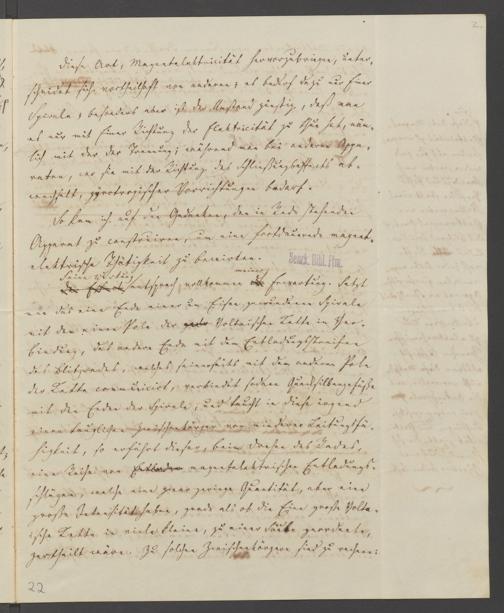 2.
Diese Art, Magnetelektricität hervorzubringen, unter-
scheidet sich vortheilhaft von anderen; es bedarf dazu nur Einer
Spirale; besonders aber ist der Umstand günstig, daß man
es nur mit Einer Richtung der Elektricität zu thun hat, näm-
lich mit der der Trennung; während man bei anderen Appa-
raten, wo sie mit der Richtung des Schließungseffekts ab-
wechselt, gyrotropischer Vorrichtungen bedarf.
So kam ich auf den Gedanken, den in Rede stehenden
Apparat zu construiren, um eine fortdauernde magnet-
elektrische Thätigkeit zu bewirken.
Senck. Bibl. Ffm.
Seine Wirkung meiner
entsprach vollkommen Erwartung. Setzt
man das eine Ende einer um Eisen gewundenen Spirale
mit dem einen Pole der Voltaischen Kette in Ver-
bindung, das andere Ende mit dem Entladungsstreifen
des Blitzrades, welches seinerseits mit dem anderen Pole
der Kette communicirt, verbindet sodann Quecksilbergefäße
mit den Enden der Spirale, und taucht in diese irgend
einen tauglichen Zwischenkörper von niederer Leitungsfä-
higkeit, so erfährt dieser, beim Drehen des Rades,
eine Reihe von magnetelektrischen Entladungs-
schlägen, welche eine zwar geringe Quantität, aber eine
große Intensität haben, grade als ob die Eine große Volta-
ische Kette in viele kleine, zu einer Säule geordnete,
zertheilt wäre. Zu solchen Zwischenkörpern sind zu rechnen:
22